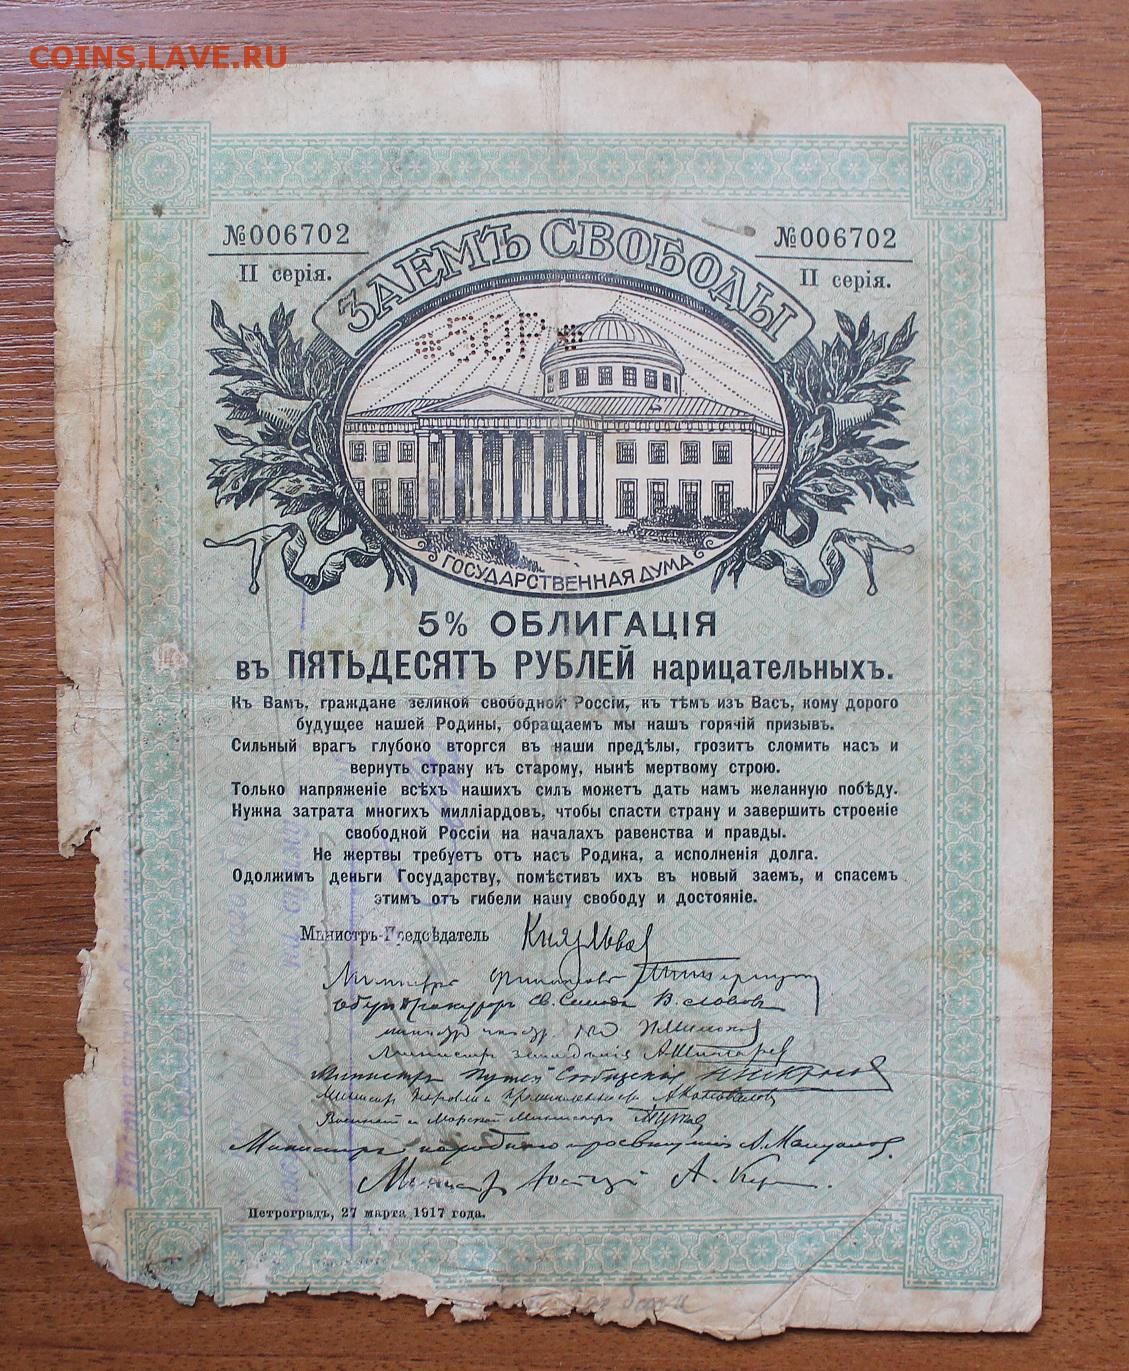 COINS.LAVE.RU
№006702
№006702
II серія.
II серія.
ЗАЕМЪ СВОБОДЫ
*50Р*
ГОСУДАРСТВЕННАЯ ДУМА
5% ОБЛИГАЦІЯ
въ ПЯТЬДЕСЯТЪ РУБЛЕЙ нарицательныхъ.
Къ Вамъ, граждане великой свободной Россіи, къ тѣмъ изъ Васъ, кому дорого
будущее нашей Родины, обращаемъ мы нашъ горячій призывъ.
Сильный врагъ глубоко вторгся въ наши предѣлы, грозитъ сломить насъ и
вернуть страну къ старому, нынѣ мертвому строю.
Только напряженіе всѣхъ нашихъ силъ можетъ дать намъ желанную побѣду.
Нужна затрата многихъ милліардовъ, чтобы спасти страну и завершить строеніе
свободной Россіи на началахъ равенства и правды.
Не жертвы требуетъ отъ насъ Родина, а исполненія долга.
Одолжимъ деньги Государству, помѣстивъ ихъ въ новый заемъ, и спасемъ
этимъ отъ гибели нашу свободу и достояніе.
Министръ-Предсѣдатель Князь Львов
Министръ Финансовъ
Оберъ Прокуроръ Св. Синода В. Львовъ
Министръ земледѣлія А. Шингаревъ
Министръ Путей Сообщенія
Министр Торговли и Промышленности А. Коноваловъ
Военный и Морской Министръ
Министръ народнаго просвѣщенія А. Мануиловъ.
Министръ Юстиціи А. Керенскій
Петроградъ, 27 марта 1917 года.